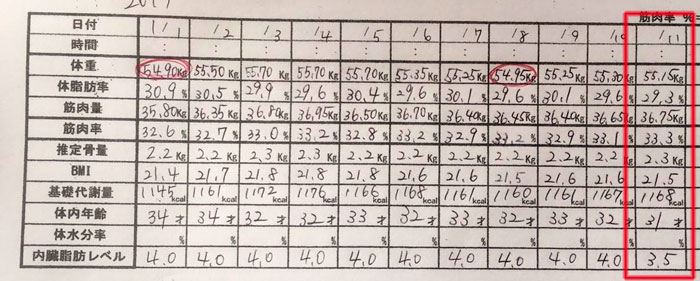 2017
筋肉率 %
日付 1/1 /2 /3 /4 /5 /6 /7 /8 /9 /10 /11
時間 : : : : : : : : : : :
体重 54.90Kg 55.50Kg 55.70Kg 55.70Kg 55.70Kg 55.35Kg 55.25Kg 54.95Kg 55.25Kg 55.30Kg 55.15Kg
体脂肪率 30.9% 30.5% 29.9% 29.6% 30.4% 29.6% 30.1% 29.6% 30.1% 29.6% 29.3%
筋肉量 35.80Kg 36.35Kg 36.80Kg 36.95Kg 36.50Kg 36.70Kg 36.40Kg 36.45Kg 36.40Kg 36.65Kg 36.75Kg
筋肉率 32.6% 32.7% 33.0% 33.2% 32.8% 33.2% 32.9% 33.2% 32.9% 33.1% 33.3%
推定骨量 2.2Kg 2.2Kg 2.3Kg 2.3Kg 2.2Kg 2.2Kg 2.2Kg 2.2Kg 2.2Kg 2.2Kg 2.3Kg
BMI 21.4 21.7 21.8 21.8 21.8 21.6 21.6 21.5 21.6 21.6 21.5
基礎代謝量 1145kcal 1161kcal 1172kcal 1176kcal 1166kcal 1168kcal 1161kcal 1160kcal 1161kcal 1167kcal 1168kcal
体内年齢 34才 34才 32才 32才 33才 32才 33才 32才 33才 32才 31才
体水分率 % % % % % % % % % % %
内臓脂肪レベル 4.0 4.0 4.0 4.0 4.0 4.0 4.0 4.0 4.0 4.0 3.5